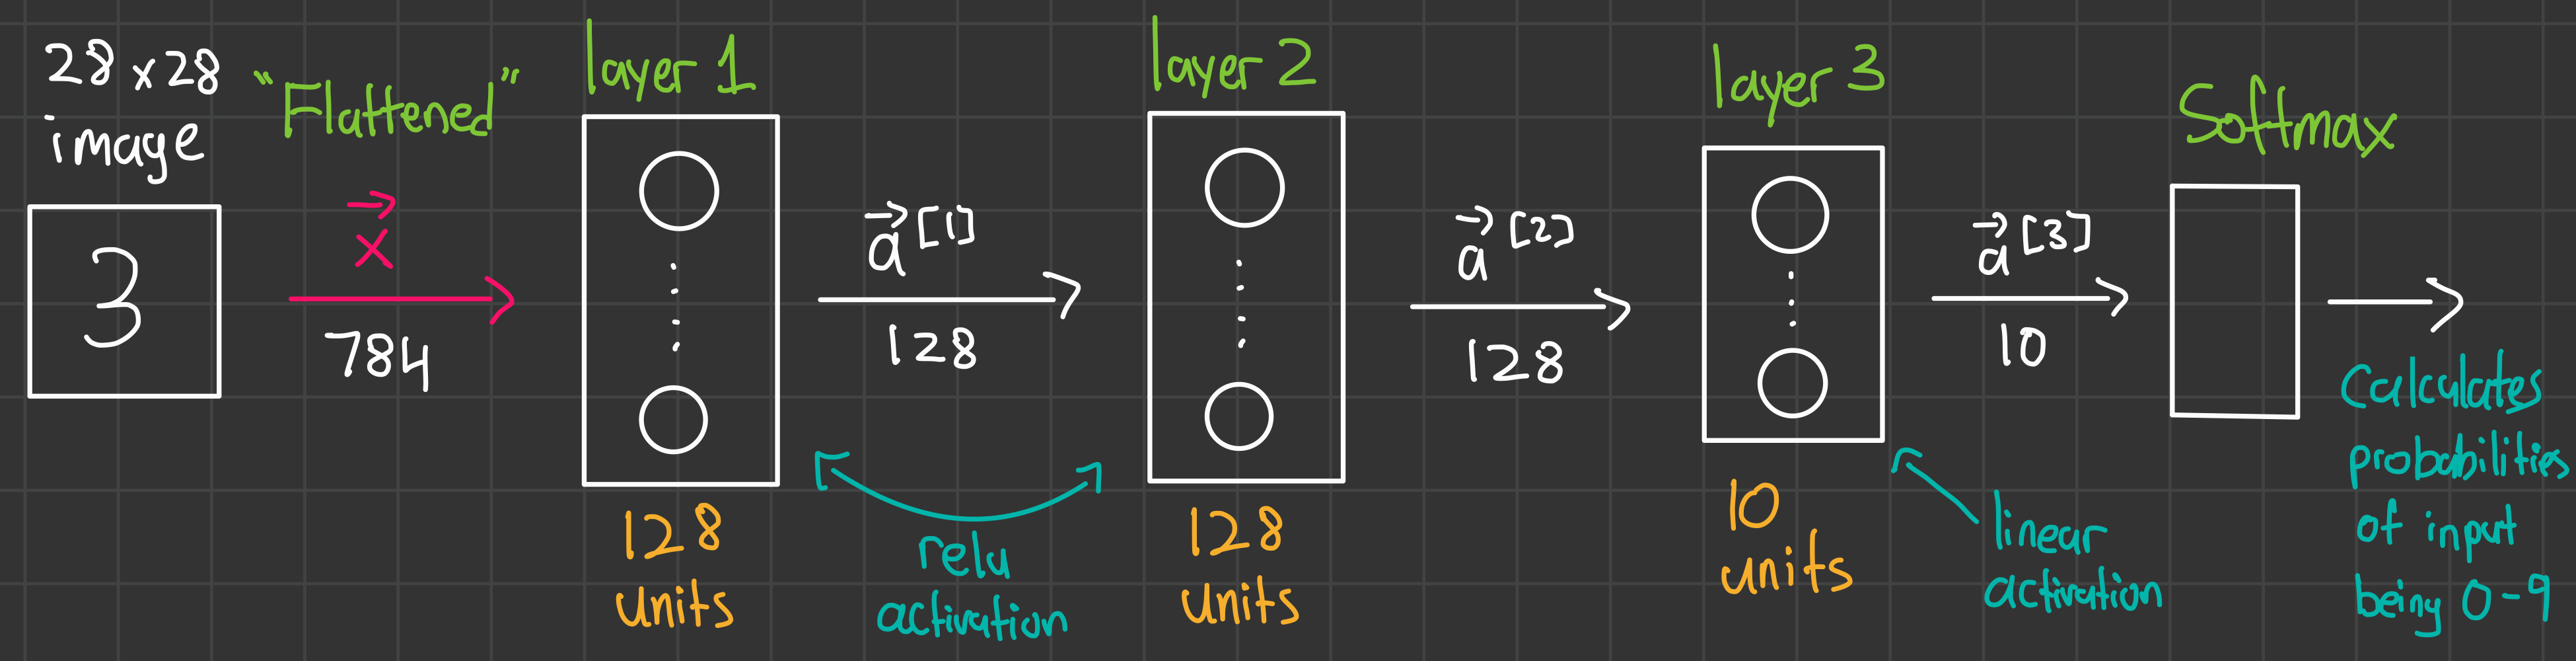 28x28
image
3
"Flattened"
x⃗
784
layer 1
128
units
a⃗[1]
128
relu
activation
layer 2
128
units
a⃗[2]
128
layer 3
10
units
a⃗[3]
10
linear
activation
Softmax
Calculates
probabilities
of input
being 0-9